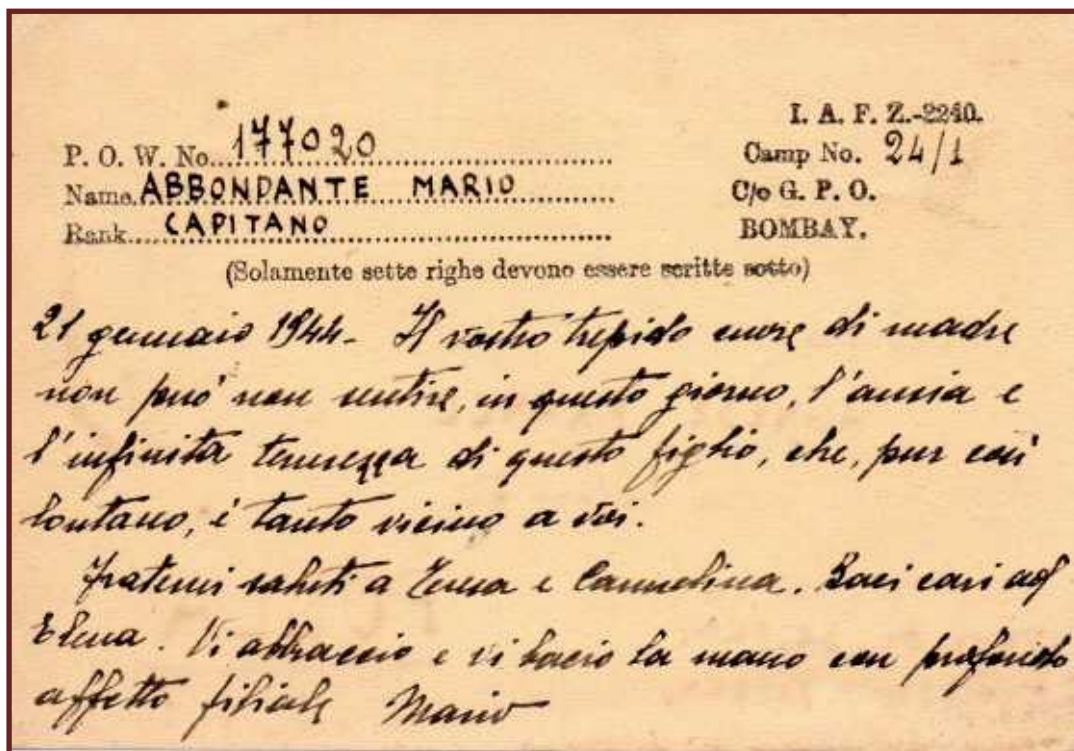 I. A. F. Z.-2240.
P. O. W. No. 177020
Camp No. 24/1
Name. ABBONDANTE MARIO
C/o G. P. O.
Rank. CAPITANO
BOMBAY.
(Solamente sette righe devono essere scritte sotto)
21 gennaio 1944 - Il vostro trepido cuore di madre
non può non sentire, in questo giorno, l'ansia e
l'infinita tenerezza di questo figlio, che, pur così
lontano, è tanto vicino a voi.
Fraterni saluti a e Carmelina. Baci cari ad
Elena. Vi abbraccio e vi bacio la mano con profondo
affetto filiale Mario